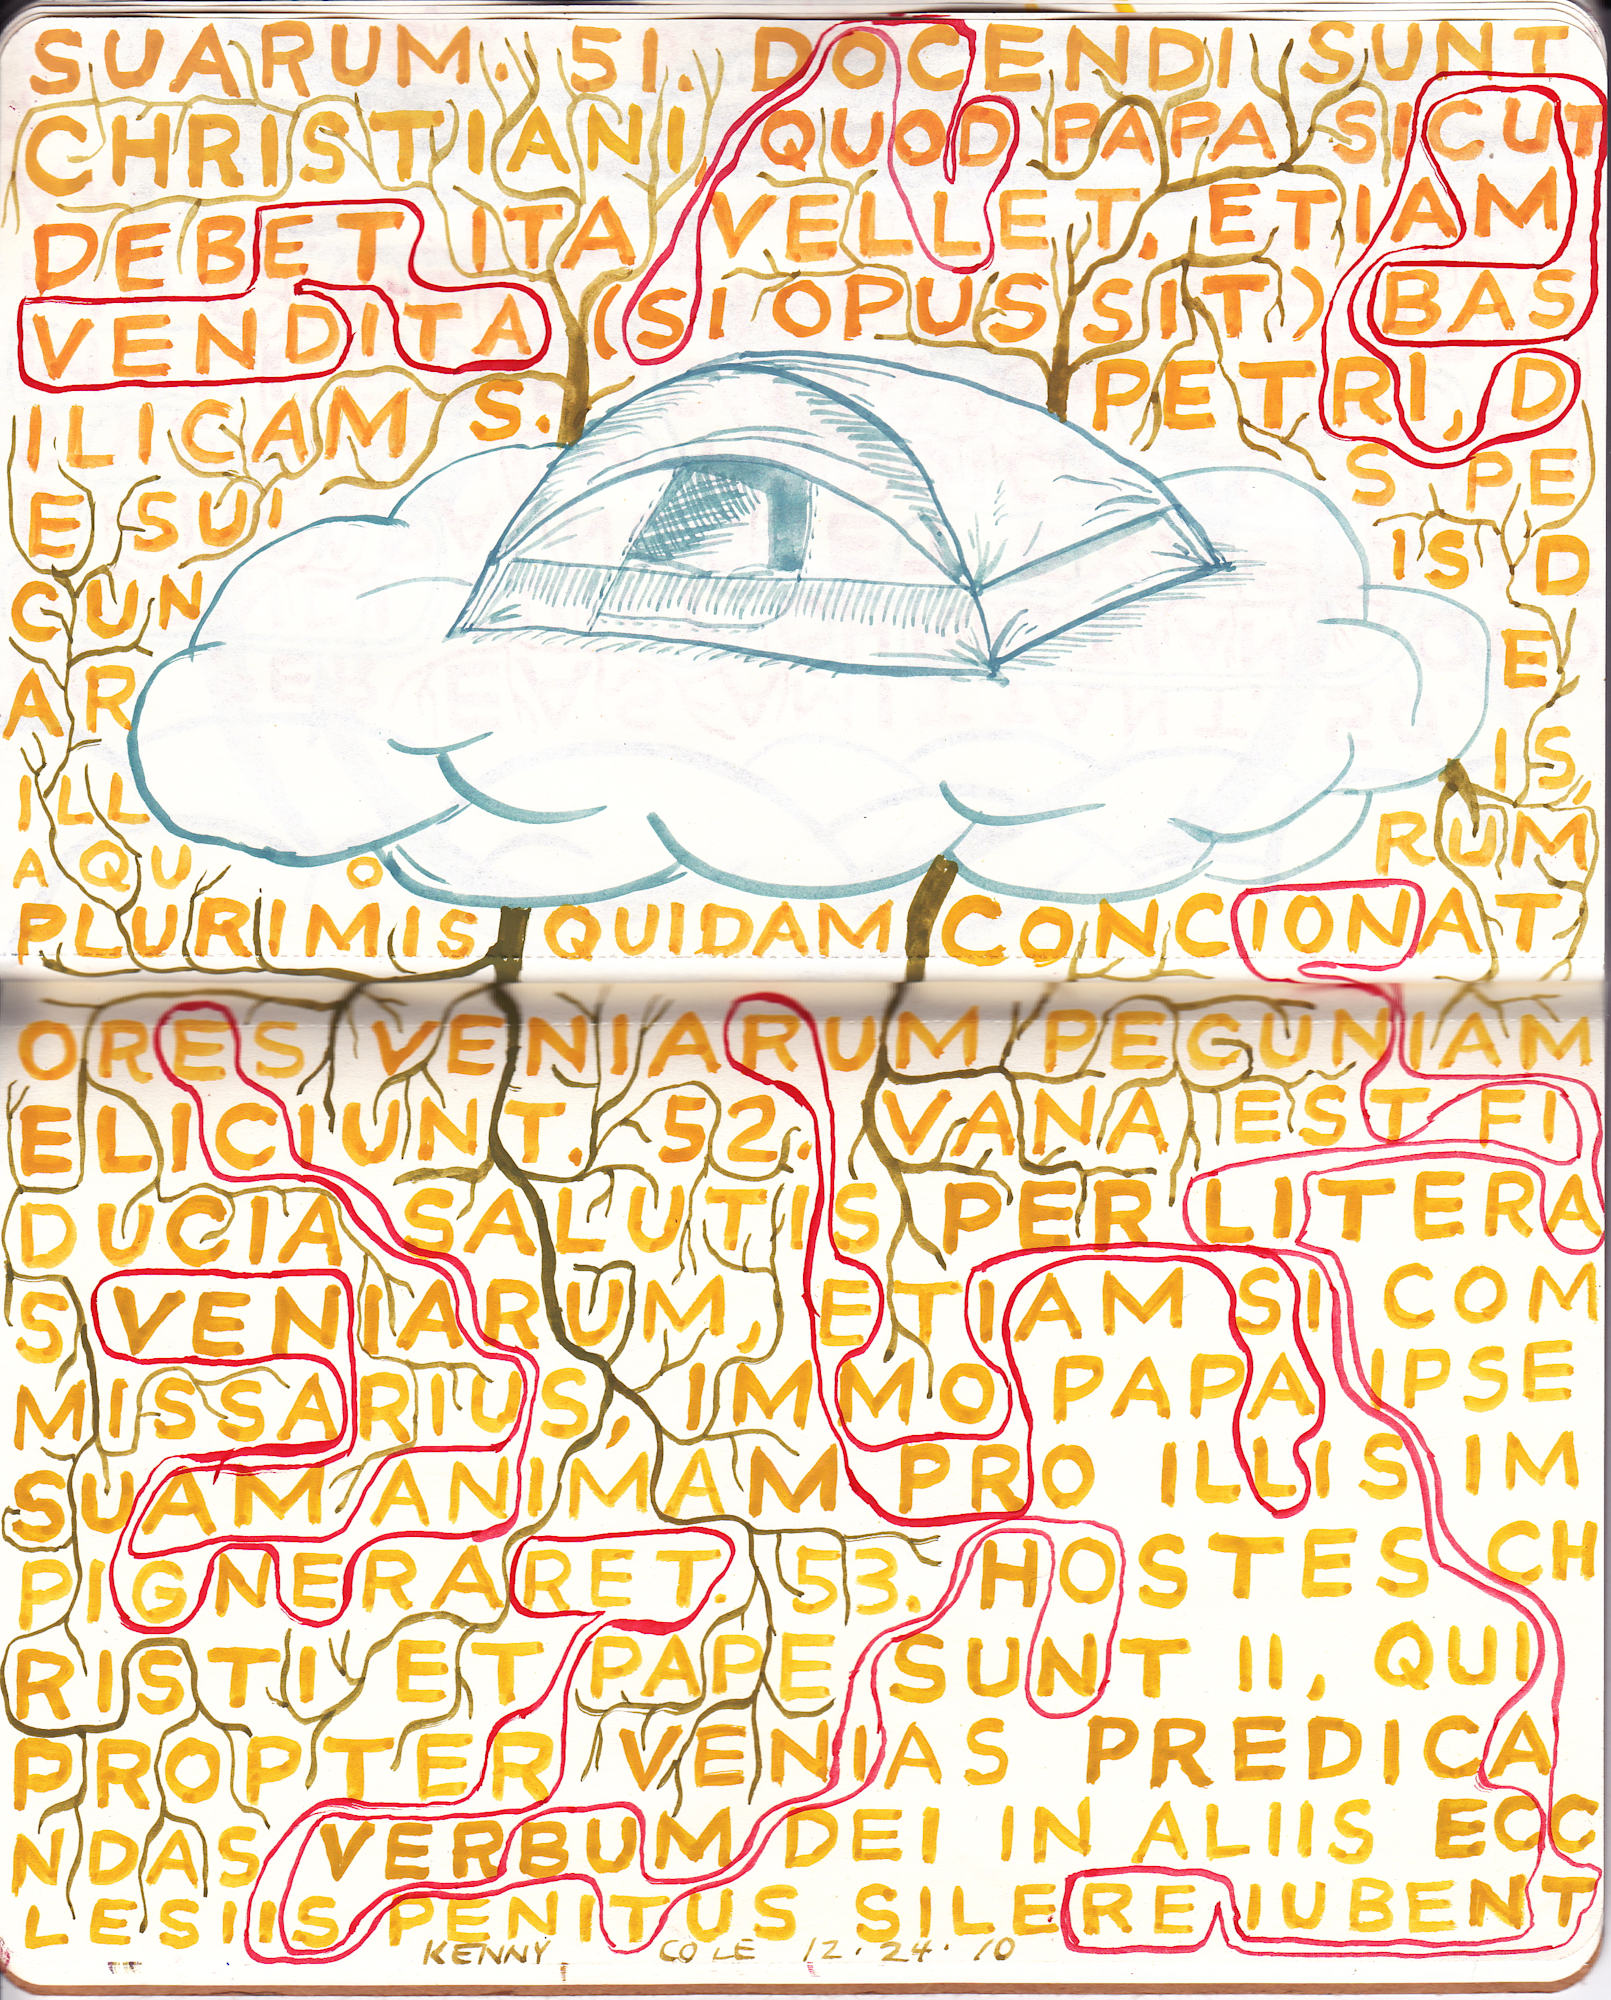 SUARUM. 51. DOCENDI SUNT
CHRISTIANI, QUOD PAPA SICUT
DEBET ITA VELLET, ETIAM
VENDITA (SI OPUS SIT) BAS
ILICAM S. PETRI, D
E SUI S PE
CUN IS D
AR E
ILL IS,
A QU O RUM
PLURIMIS QUIDAM CONCIONAT
ORES VENIARUM PECUNIAM
ELICIUNT. 52. VANA EST FI
DUCIA SALUTIS PER LITERA
S VENIARUM, ETIAM SI COM
MISSARIUS, IMMO PAPA IPSE
SUAM ANIMAM PRO ILLIS IM
PIGNERARET. 53. HOSTES CH
RISTI ET PAPE SUNT II, QUI
PROPTER VENIAS PREDICA
NDAS VERBUM DEI IN ALIIS ECC
LESIIS PENITUS SILERE IUBENT
KENNY COLE 12.24.10